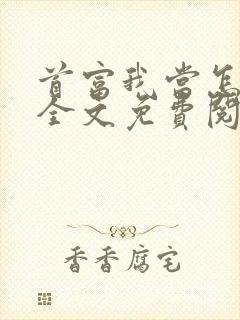 首富我当怎
全文免费阅
香香腐宅